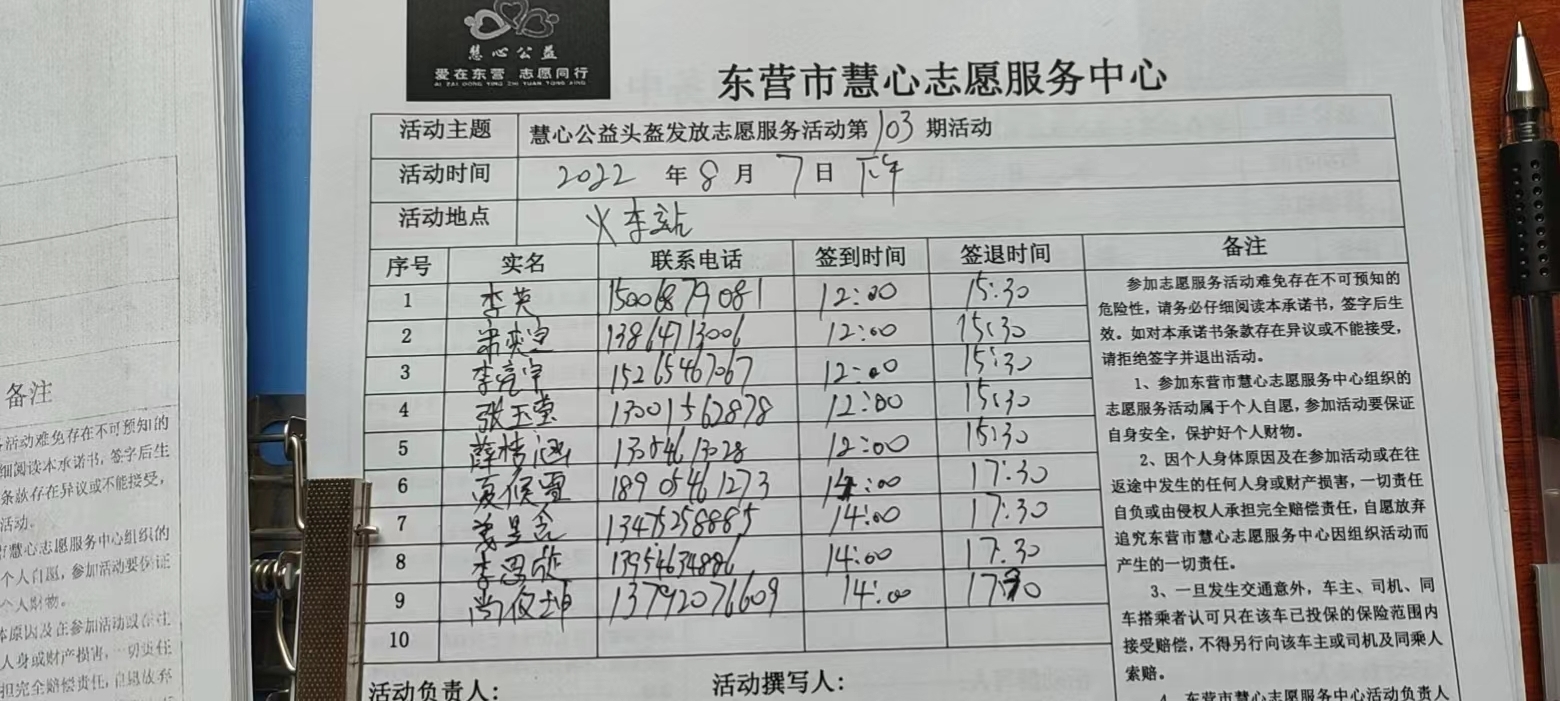 慧心公益
爱在东营 志愿同行
AI ZAI DONG YING ZHI YUAN TONG XING
东营市慧心志愿服务中心
活动主题 慧心公益头盔发放志愿服务活动第103期活动
活动时间 2022年8月7日下午
活动地点 火车站
序号 实名 联系电话 签到时间 签退时间 备注
1 李英 15006879081 12:00 15:30
2 13864713006 12:00 15:30
3 李亮宇 15265467067 12:00 15:30
4 张玉莹 13001562878 12:00 15:30
5 薛梓涵 12:00 15:30
6 夏侯雪 18905461273 14:00 17:30
7 13475258885 14:00 17:30
8 李思欣 14:00 17:30
9 尚俊坤 13792076609 14:00 17:30
10
参加志愿服务活动难免存在不可预知的
危险性，请务必仔细阅读本承诺书，签字后生
效。如对本承诺书条款存在异议或不能接受，
请拒绝签字并退出活动。
1、参加东营市慧心志愿服务中心组织的
志愿服务活动属于个人自愿，参加活动要保证
自身安全，保护好个人财物。
2、因个人身体原因及在参加活动或在往
返途中发生的任何人身或财产损害，一切责任
自负或由侵权人承担完全赔偿责任，自愿放弃
追究东营市慧心志愿服务中心因组织活动而
产生的一切责任。
3、一旦发生交通意外，车主、司机、同
车搭乘者认可只在该车已投保的保险范围内
接受赔偿，不得另行向该车主或司机及同乘人
索赔。
4、东营市慧心志愿服务中心活动负责人
活动负责人：
活动撰写人：
备注
活动难免存在不可预知的
细阅读本承诺书，签字后生
条款存在异议或不能接受，
活动。
市慧心志愿服务中心组织的
个人自愿，参加活动要保证
个人财物。
体原因及在参加活动或在往
人身或财产损害，一切责任
担完全赔偿责任，自愿放弃